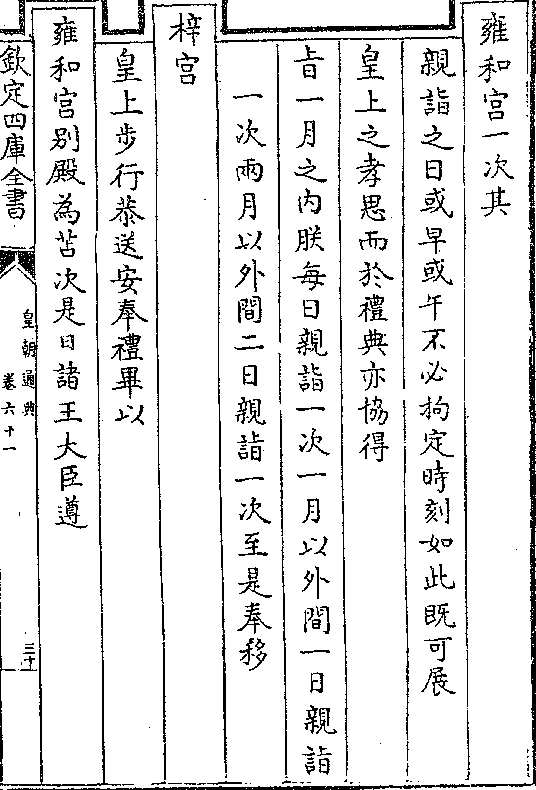 雍和宫一次其
親詣之日或早或午不必拘定時刻如此既可展
皇上之孝思而於禮典亦協得
旨一月之內朕每日親詣一次一月以外間一日親詣
一次兩月以外間二日親詣一次至是奉移
梓宫
皇上步行恭送安奉禮畢以
雍和宫別殿為苫次是日諸王大臣遵
欽定四庫全書
皇朝通典
卷六十一
三十